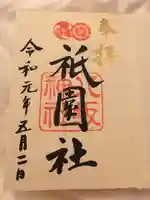 奉拝
祇園社
八坂神社
令和元年五月二日